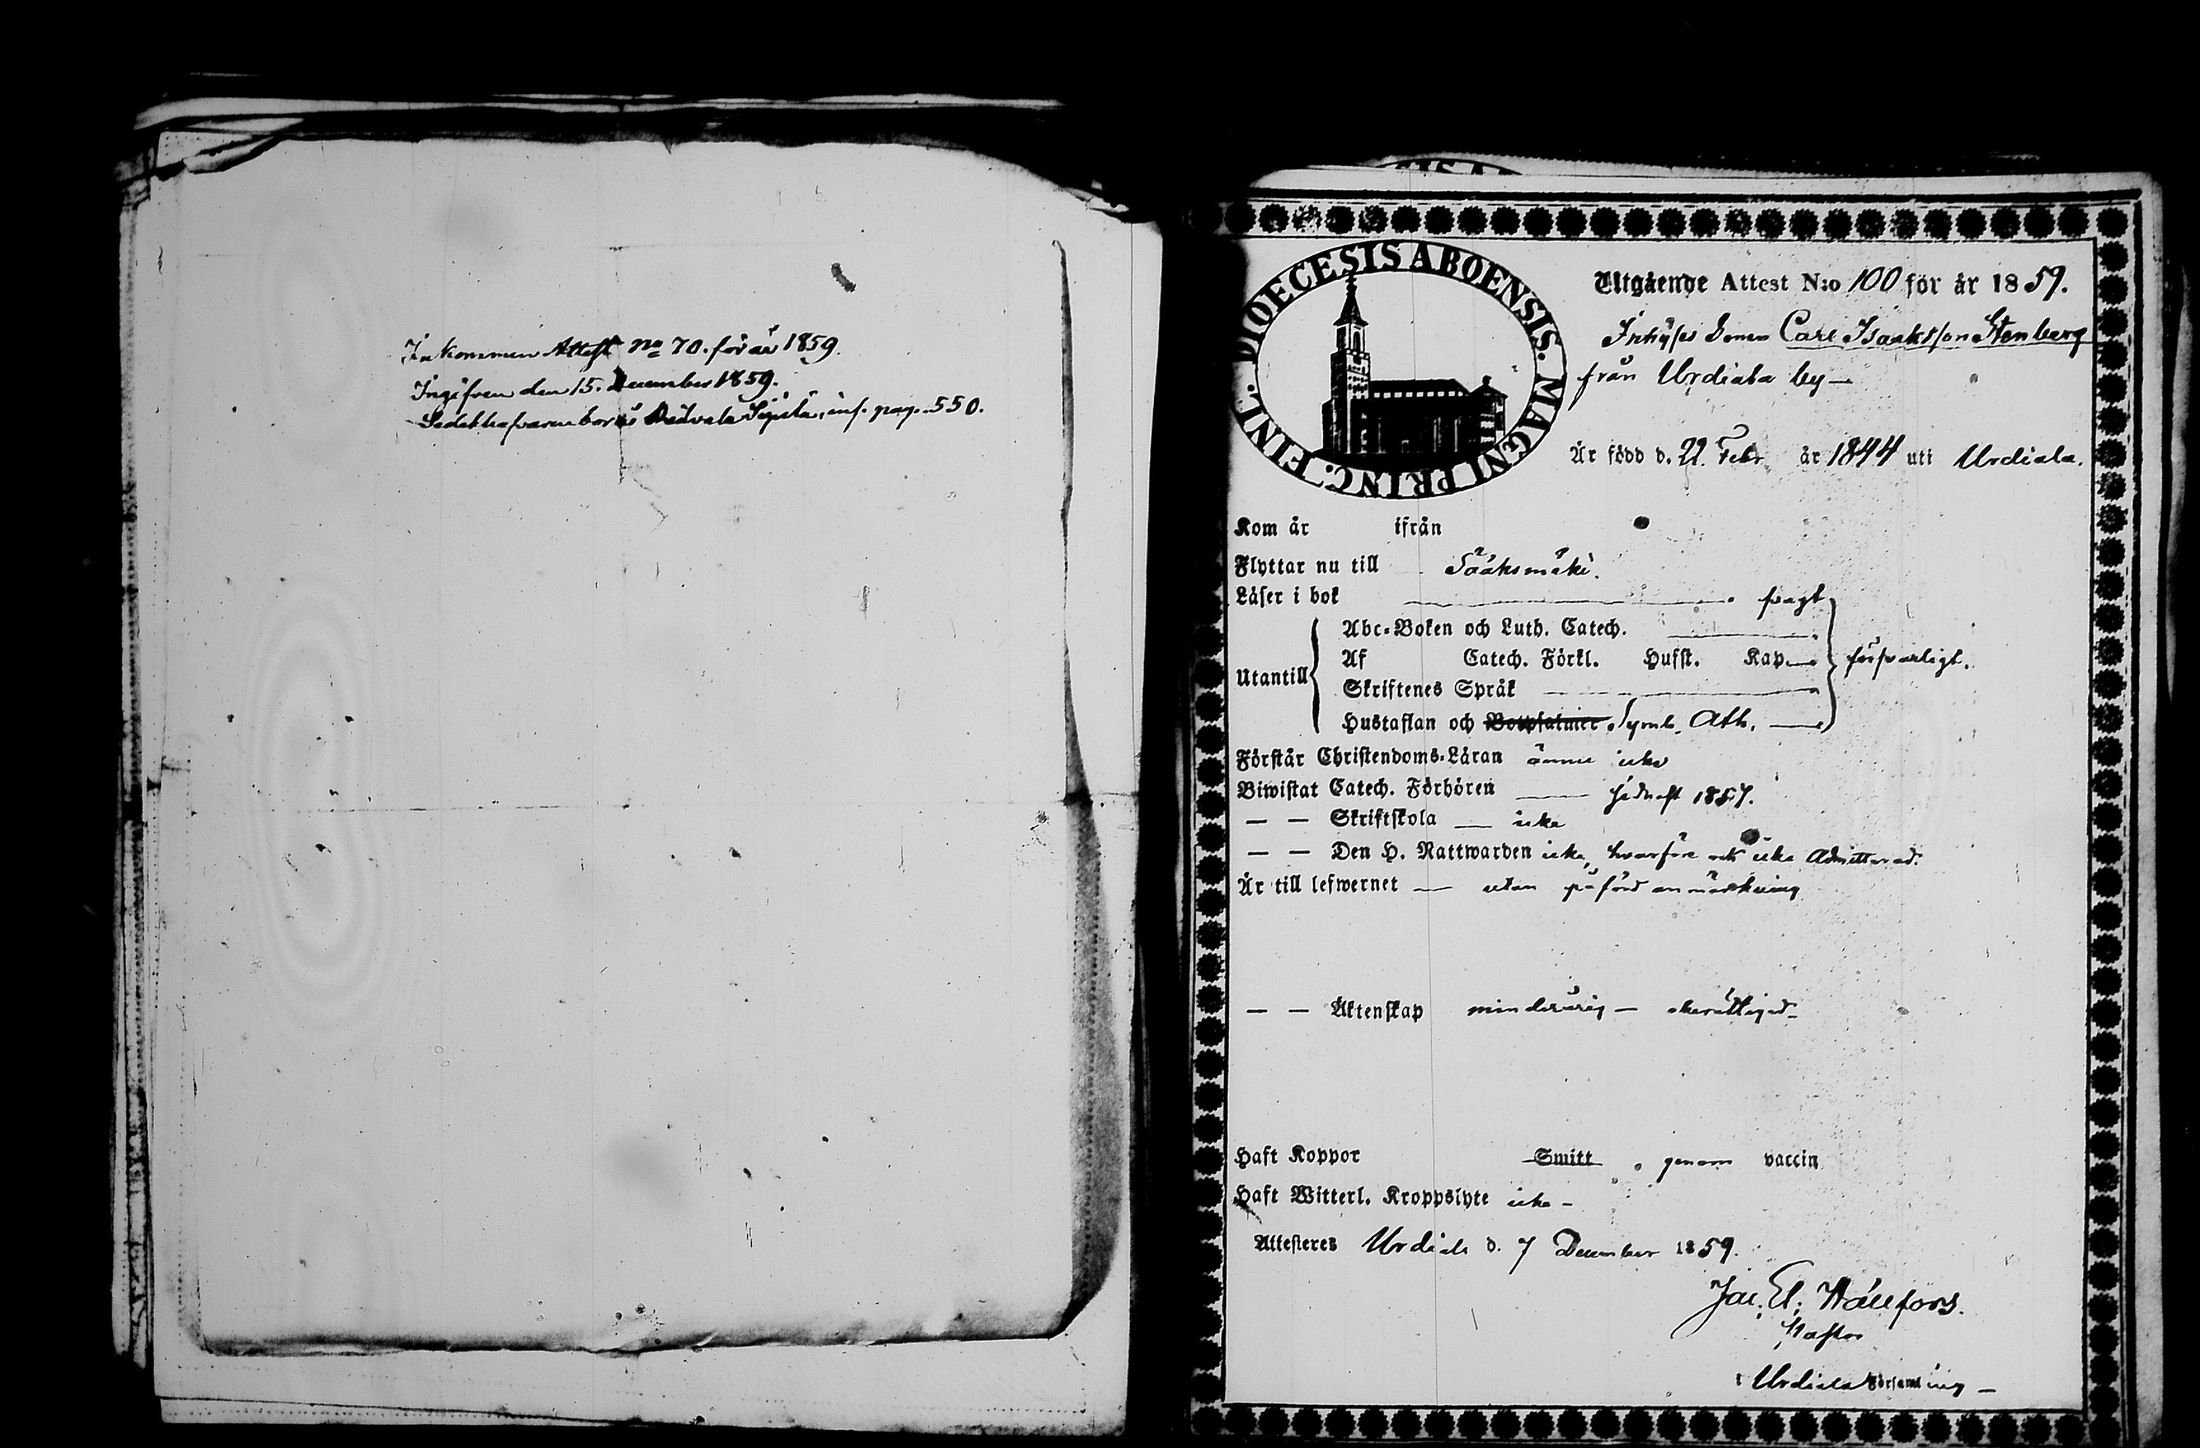 Inkommen Attest No 70. för år 1859.
Ingifven den 15. December 1859.
inf. pag. 550.
DIOECESIS ABOENSIS. MAGNI PRINC. FINL.
Utgående Attest N:o 100 för år 1859.
Inhyses Carl Isaaksson Stenberg
från Urdiala by —
Är född d. 22. Febr år 1844 uti Urdiala.
Kom år ifrån
Flyttar nu till Sääksmäki.
Läser i bok — svagt
Abc-Boken och Luth. Catech. —
Utantill
Af Catech. Förkl. Hufst. Kap. — försvarligt.
Skriftenes Språk —
Hustaflan och Botpsalmer Symb. Ath. —
Förstår Christendoms-Läran ännu icke
Biwistat Catech. Förhören — sednast 1857.
— — Skriftskola — icke
— — Den H. Nattwarden icke, hvarföre ock icke Admitterad.
Är till lefwernet — utan påförd anmärkning
— — Äktenskap minderårig — oberättigad —
Haft Koppor Smitt genom vaccin
Haft Witterl. Kroppslyte icke —
Attesteres Urdiala d. 7 December 1859.
Jac. El.
Pastor
i Urdiala Församling —